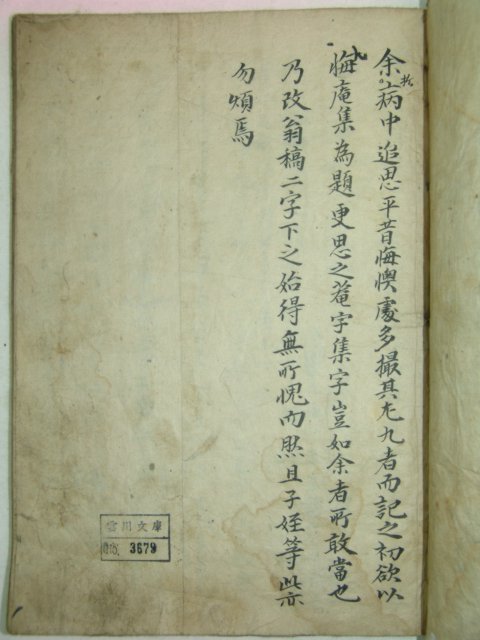 余於病中追思平昔悔懊處多撮其尤者而記之初欲以
悔庵集為題更思之菴字集字豈如余者所敢當也
乃改翁稿二字下之始得無所愧而然且子姪等
勿煩焉
雲川文庫
3679